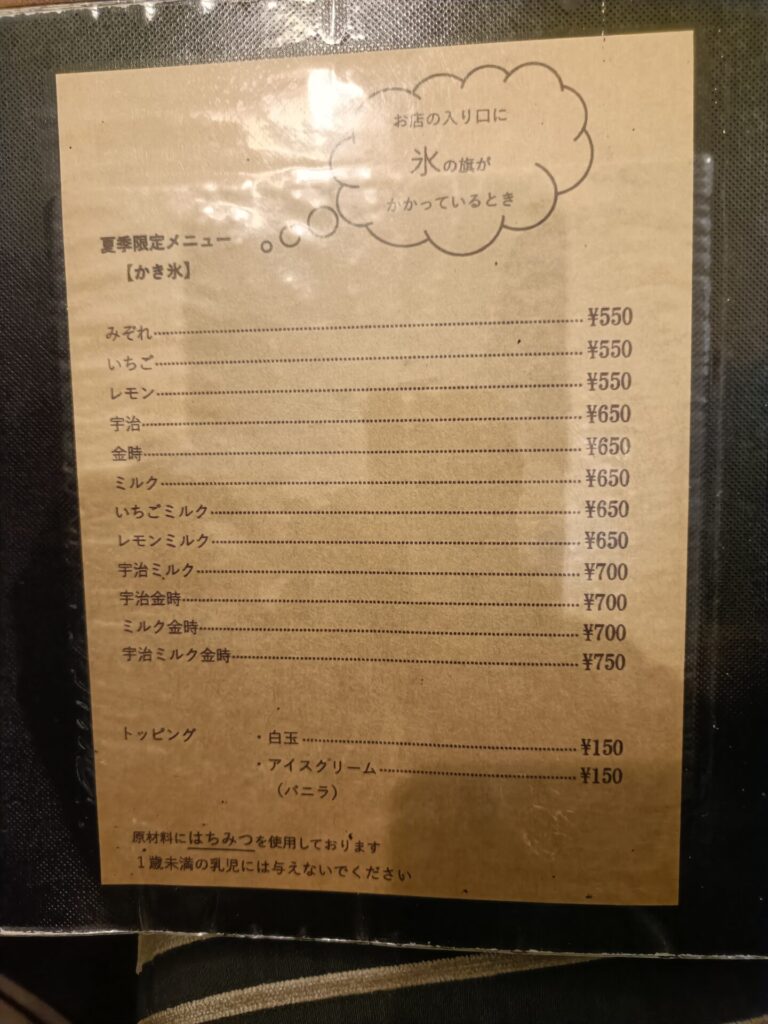 お店の入り口に
氷の旗が
かかっているとき
夏季限定メニュー
【かき氷】
みぞれ ¥550
いちご ¥550
レモン ¥550
宇治 ¥650
金時 ¥650
ミルク ¥650
いちごミルク ¥650
レモンミルク ¥650
宇治ミルク ¥700
宇治金時 ¥700
ミルク金時 ¥700
宇治ミルク金時 ¥750
トッピング ・白玉 ¥150
・アイスクリーム ¥150
（バニラ）
原材料にはちみつを使用しております
1歳未満の乳児には与えないでください